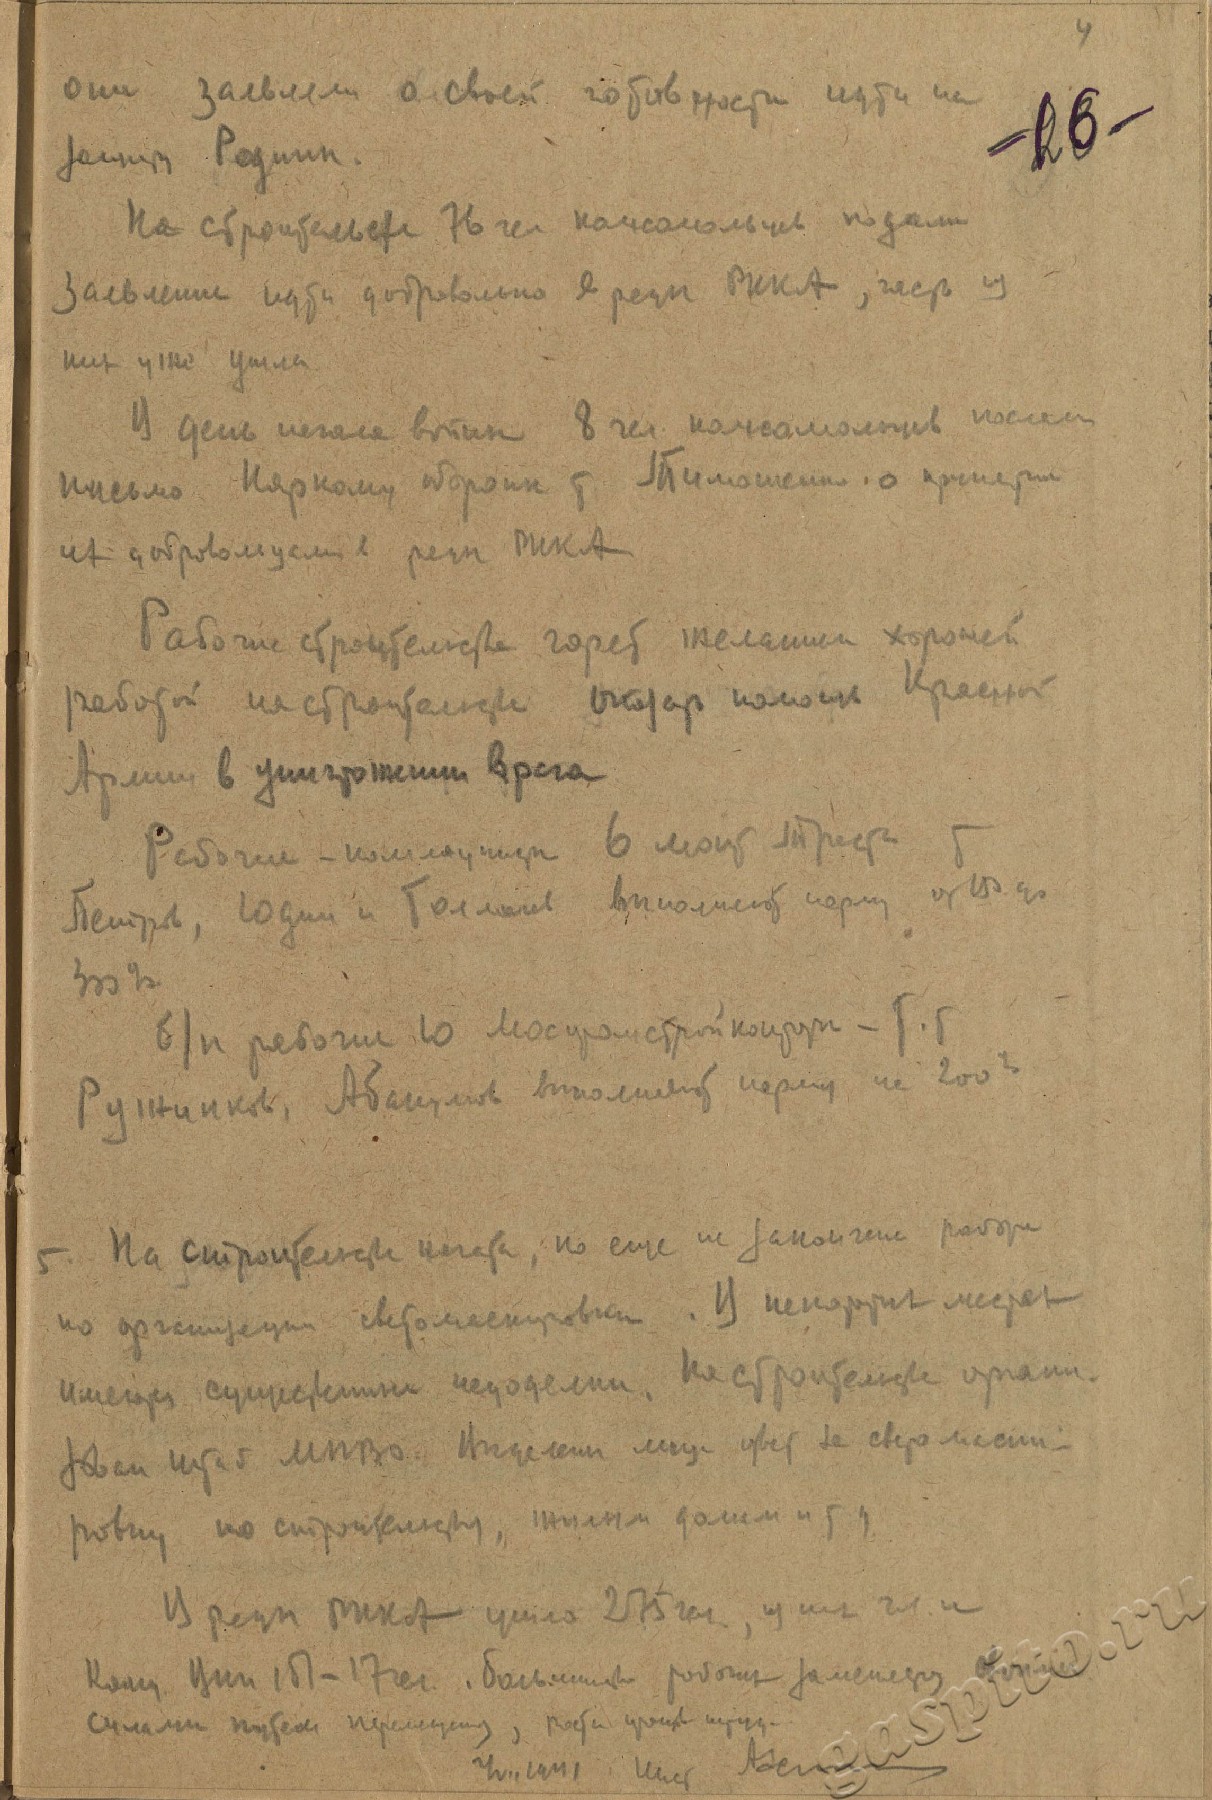 4
они заявляли о своей готовности идти на
-26-
защиту Родины.
На строительстве 76 чел комсомольцев подали
заявление идти добровольно в ряды РККА, часть из
них уже ушла
В день начала войны 8 чел. комсомольцев послали
письмо Наркому обороны т. Тимошенко о принятии
их добровольцами в ряды РККА
Рабочие строительства горят желанием хорошей
работой на строительстве оказать помощь Красной
Армии в уничтожении врага
Рабочие - коммунисты 6 треста т
Петров, Юдин и выполняют норму от до
300%
б/п рабочие 10 Моспромстройконторы - т.т
Ружинков, Абакумов выполняют норму на 200%
5. На строительстве начата, но еще не закончена работа
по организации светомаскировки. В некоторых местах
имеются существенные недоделки. На строительстве органи-
зован штаб МПВО. Выделены лица ответ за светомаски-
ровку по строительству, жилым домам и т д
В ряды РККА ушло 275 чел, из них чл. и
Канд ВКП(б) - 17 чел. рабочих
силами путем
1941
gaspito.ru